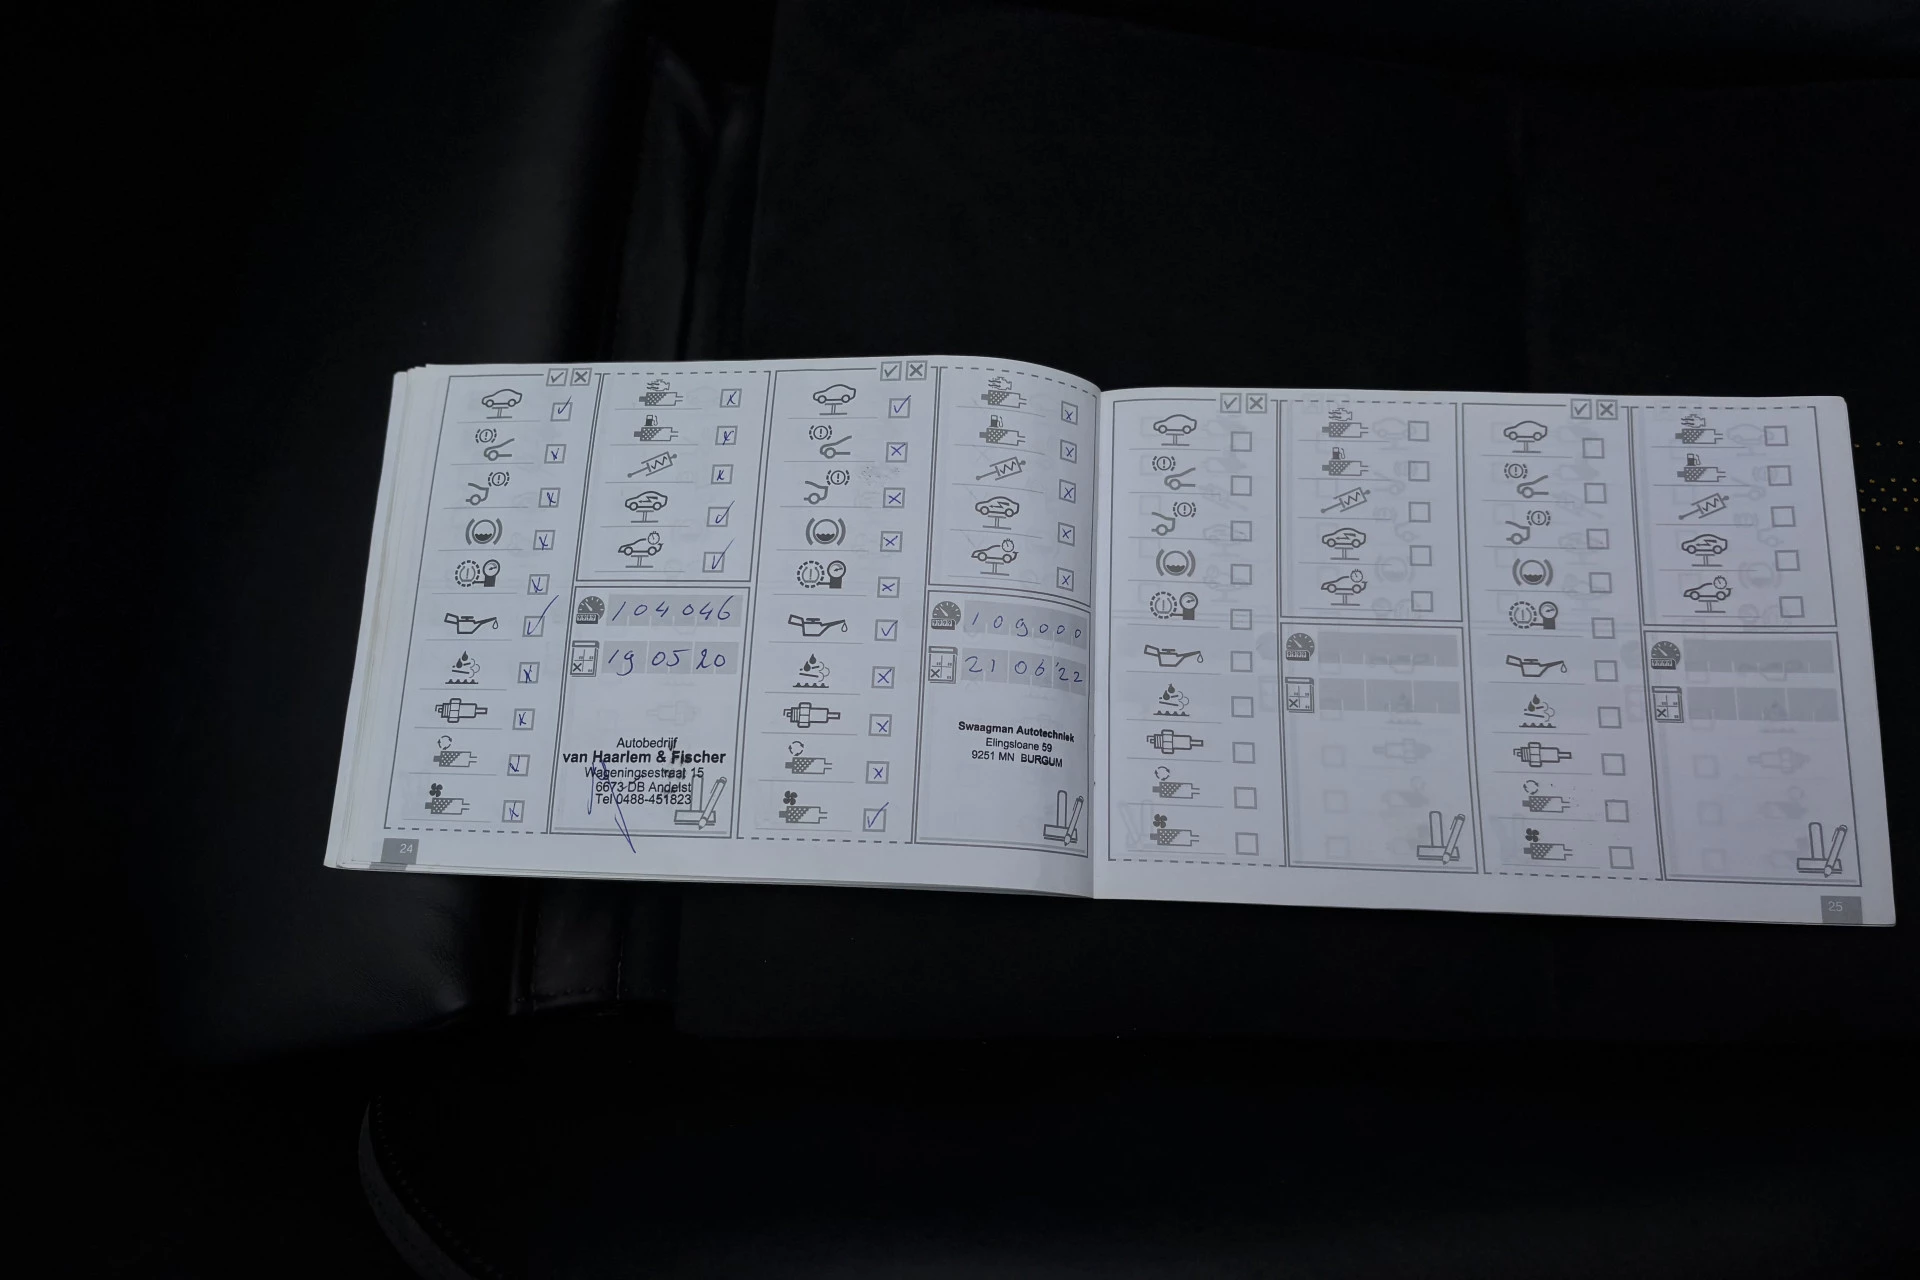 104046
19 05 20
Autobedrijf
van Haarlem & Fischer
Wageningsestraat 15
6673 DB Andelst
Tel 0488-451823
24
109000
21 06 '22
Swaagman Autotechniek
Elingsloane 59
9251 MN BURGUM
25